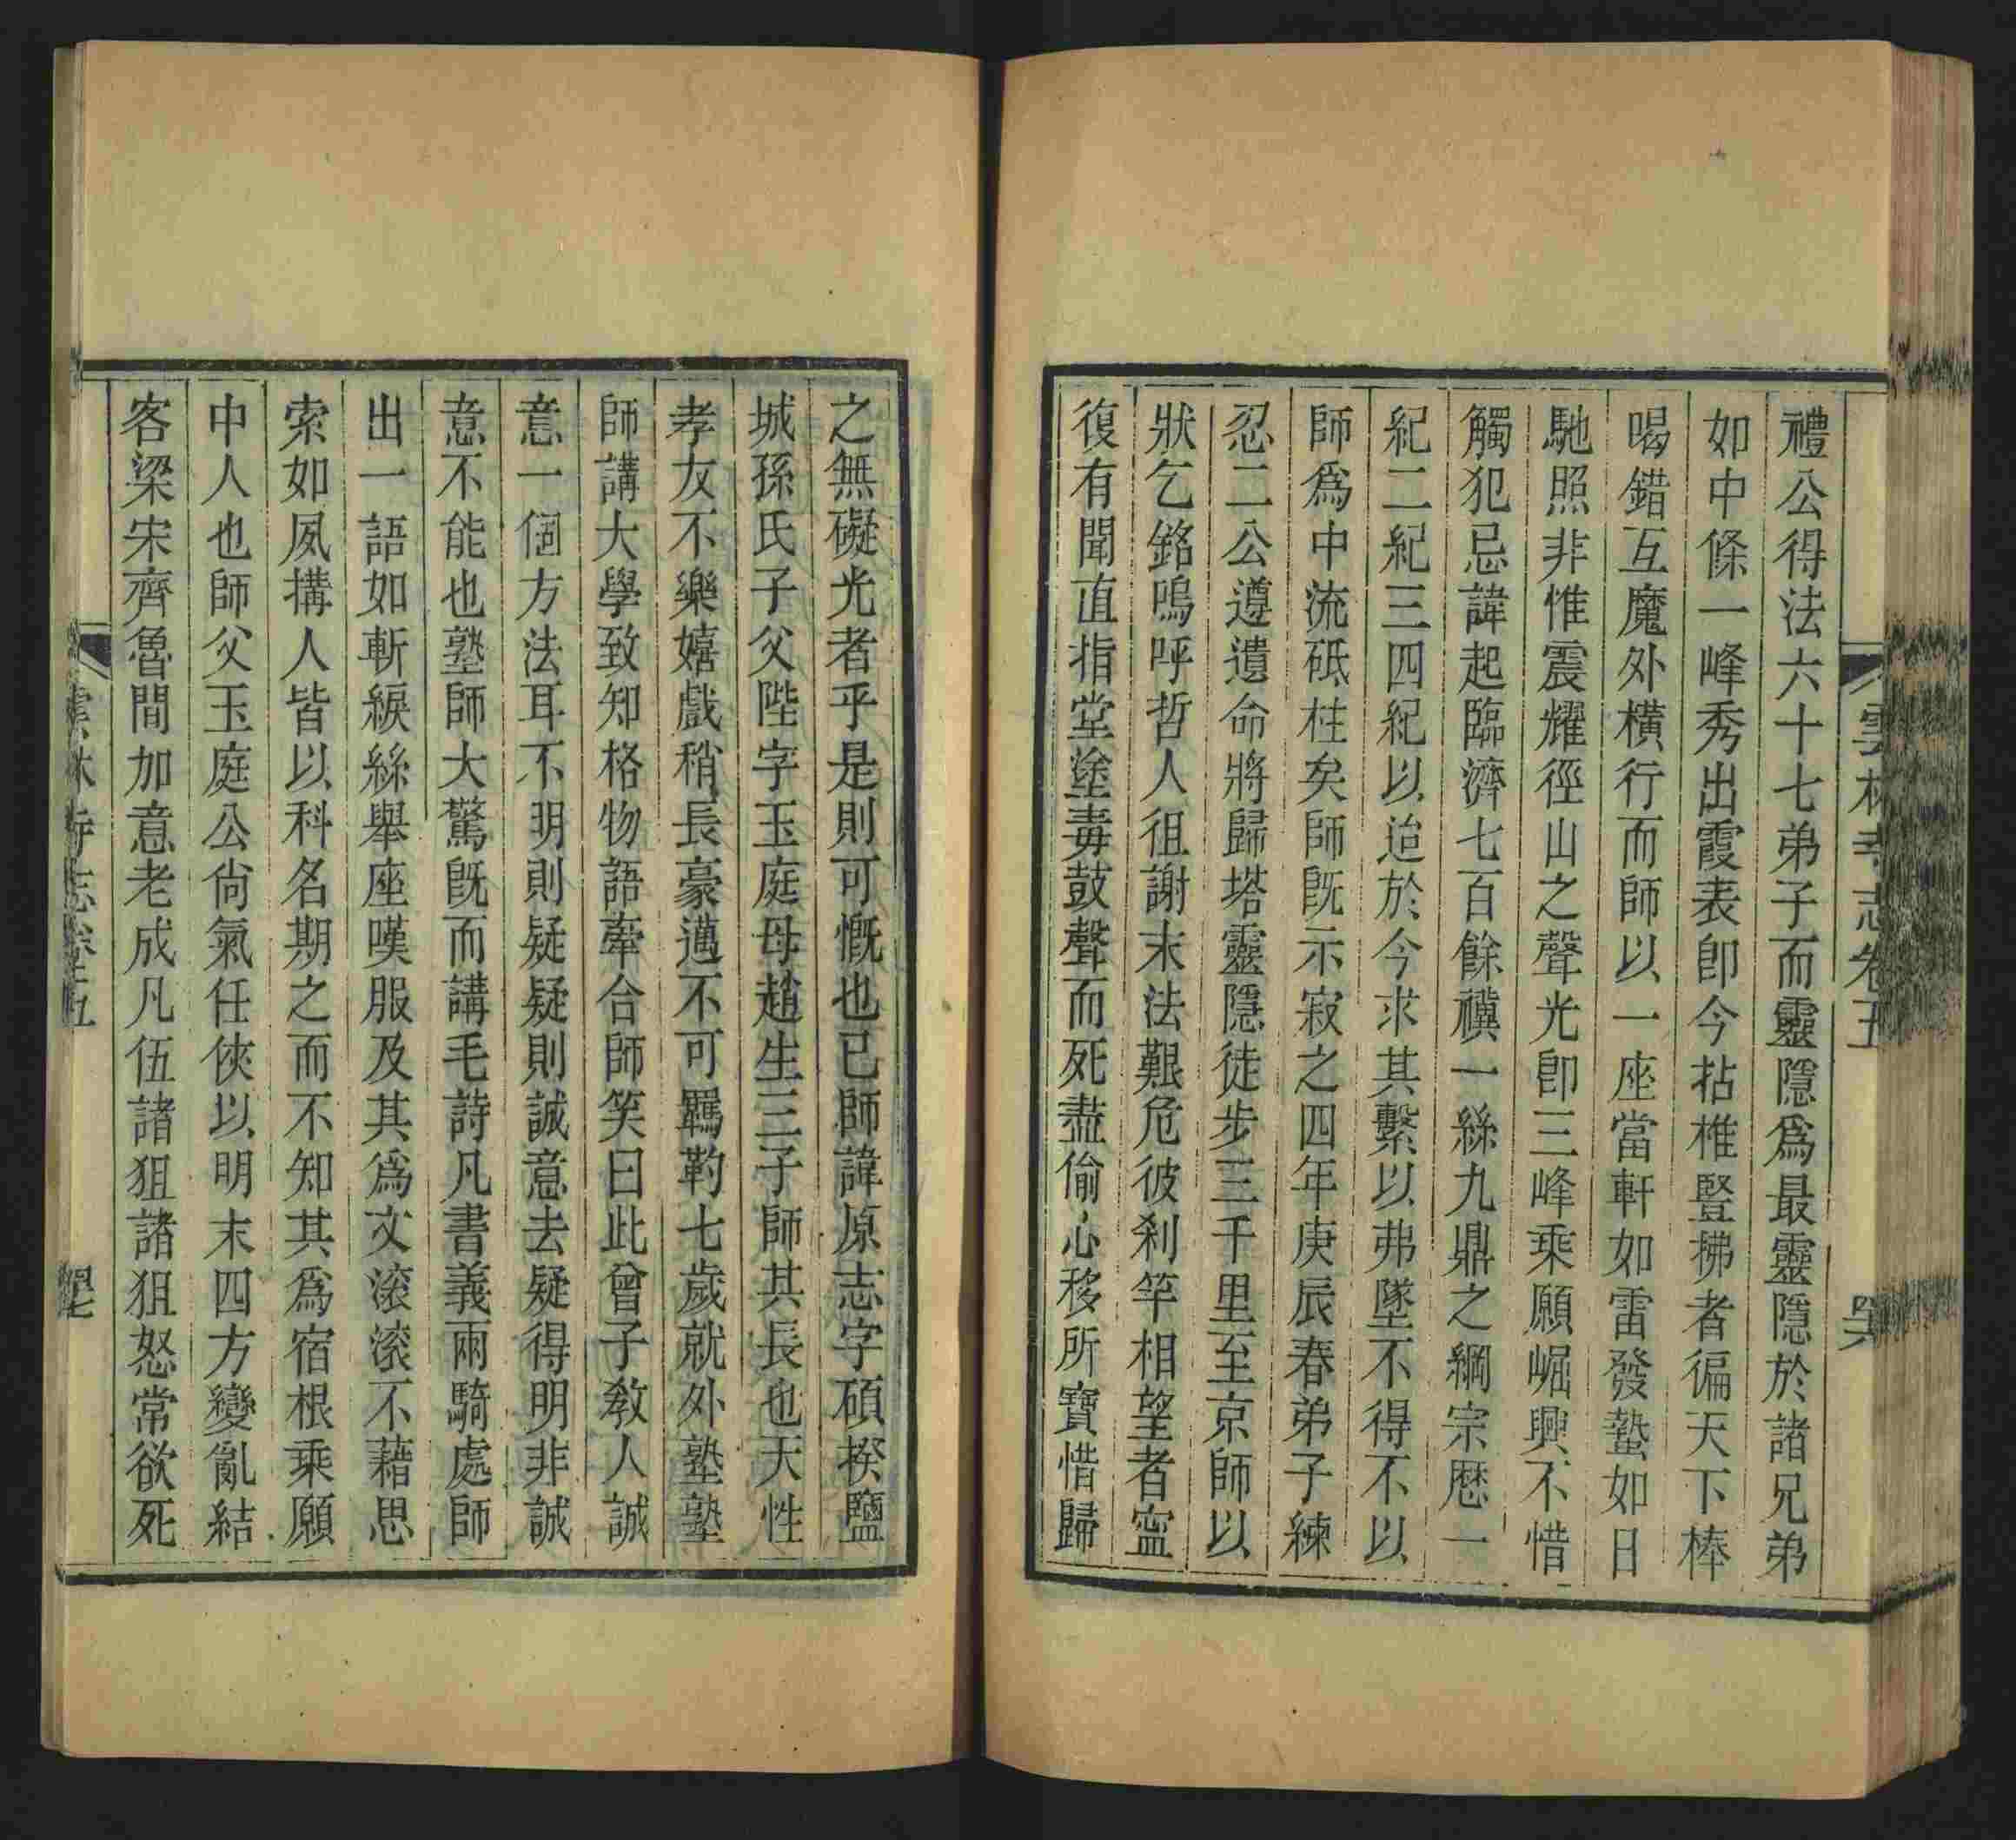 雲林寺志卷五
禮公得法六十七弟子而靈隱爲最靈隱於諸兄弟
如中條一峰秀出霞表卽今拈椎豎拂者徧天下棒
喝錯互魔外橫行而師以一座當軒如雷發蟄如日
馳照非惟震耀徑山之聲光卽三峰乘願崛興不惜
觸犯忌諱起臨濟七百餘禩一絲九鼎之綱宗歷一
紀二紀三四紀以迨於今求其繫以弗墜不得不以
師爲中流砥柱矣師旣示寂之四年庚辰春弟子練
忍二公遵遺命將歸塔靈隱徒步三千里至京師以
狀乞銘嗚呼哲人徂謝末法艱危彼刹竿相望者寍
復有聞直指堂塗毒鼓聲而死盡偷心移所寶惜歸
之無礙光者乎是則可慨也已師諱原志字碩揆鹽
城孫氏子父陛字玉庭母趙生三子師其長也天性
孝友不樂嬉戲稍長豪邁不可羈靮七歲就外塾塾
師講大學致知格物語牽合師笑曰此曾子敎人誠
意一個方法耳不明則疑疑則誠意去疑得明非誠
意不能也塾師大驚旣而講毛詩凡書義兩騎處師
出一語如斬綟絲舉座嘆服及其爲文滚滚不藉思
索如夙搆人皆以科名期之而不知其爲宿根乘願
中人也師父玉庭公尙氣任俠以明末四方變亂結
客梁宋齊魯間加意老成凡伍諸狙諸狙怒常欲死
雲林寺志卷五